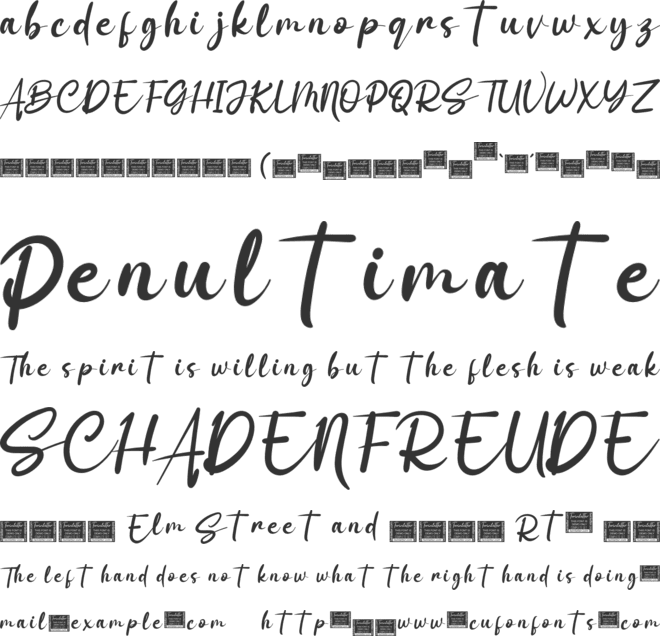 abcdefghijklmnopqrstuvwxyz
ABCDEFGHIJKLMNOPQRSTUVWXYZ
(
Penultimate
The spirit is willing but the flesh is weak
SCHADENFREUDE
Elm Street and Rt
The left hand does not know what the right hand is doing
mail example com http www cufonfonts com